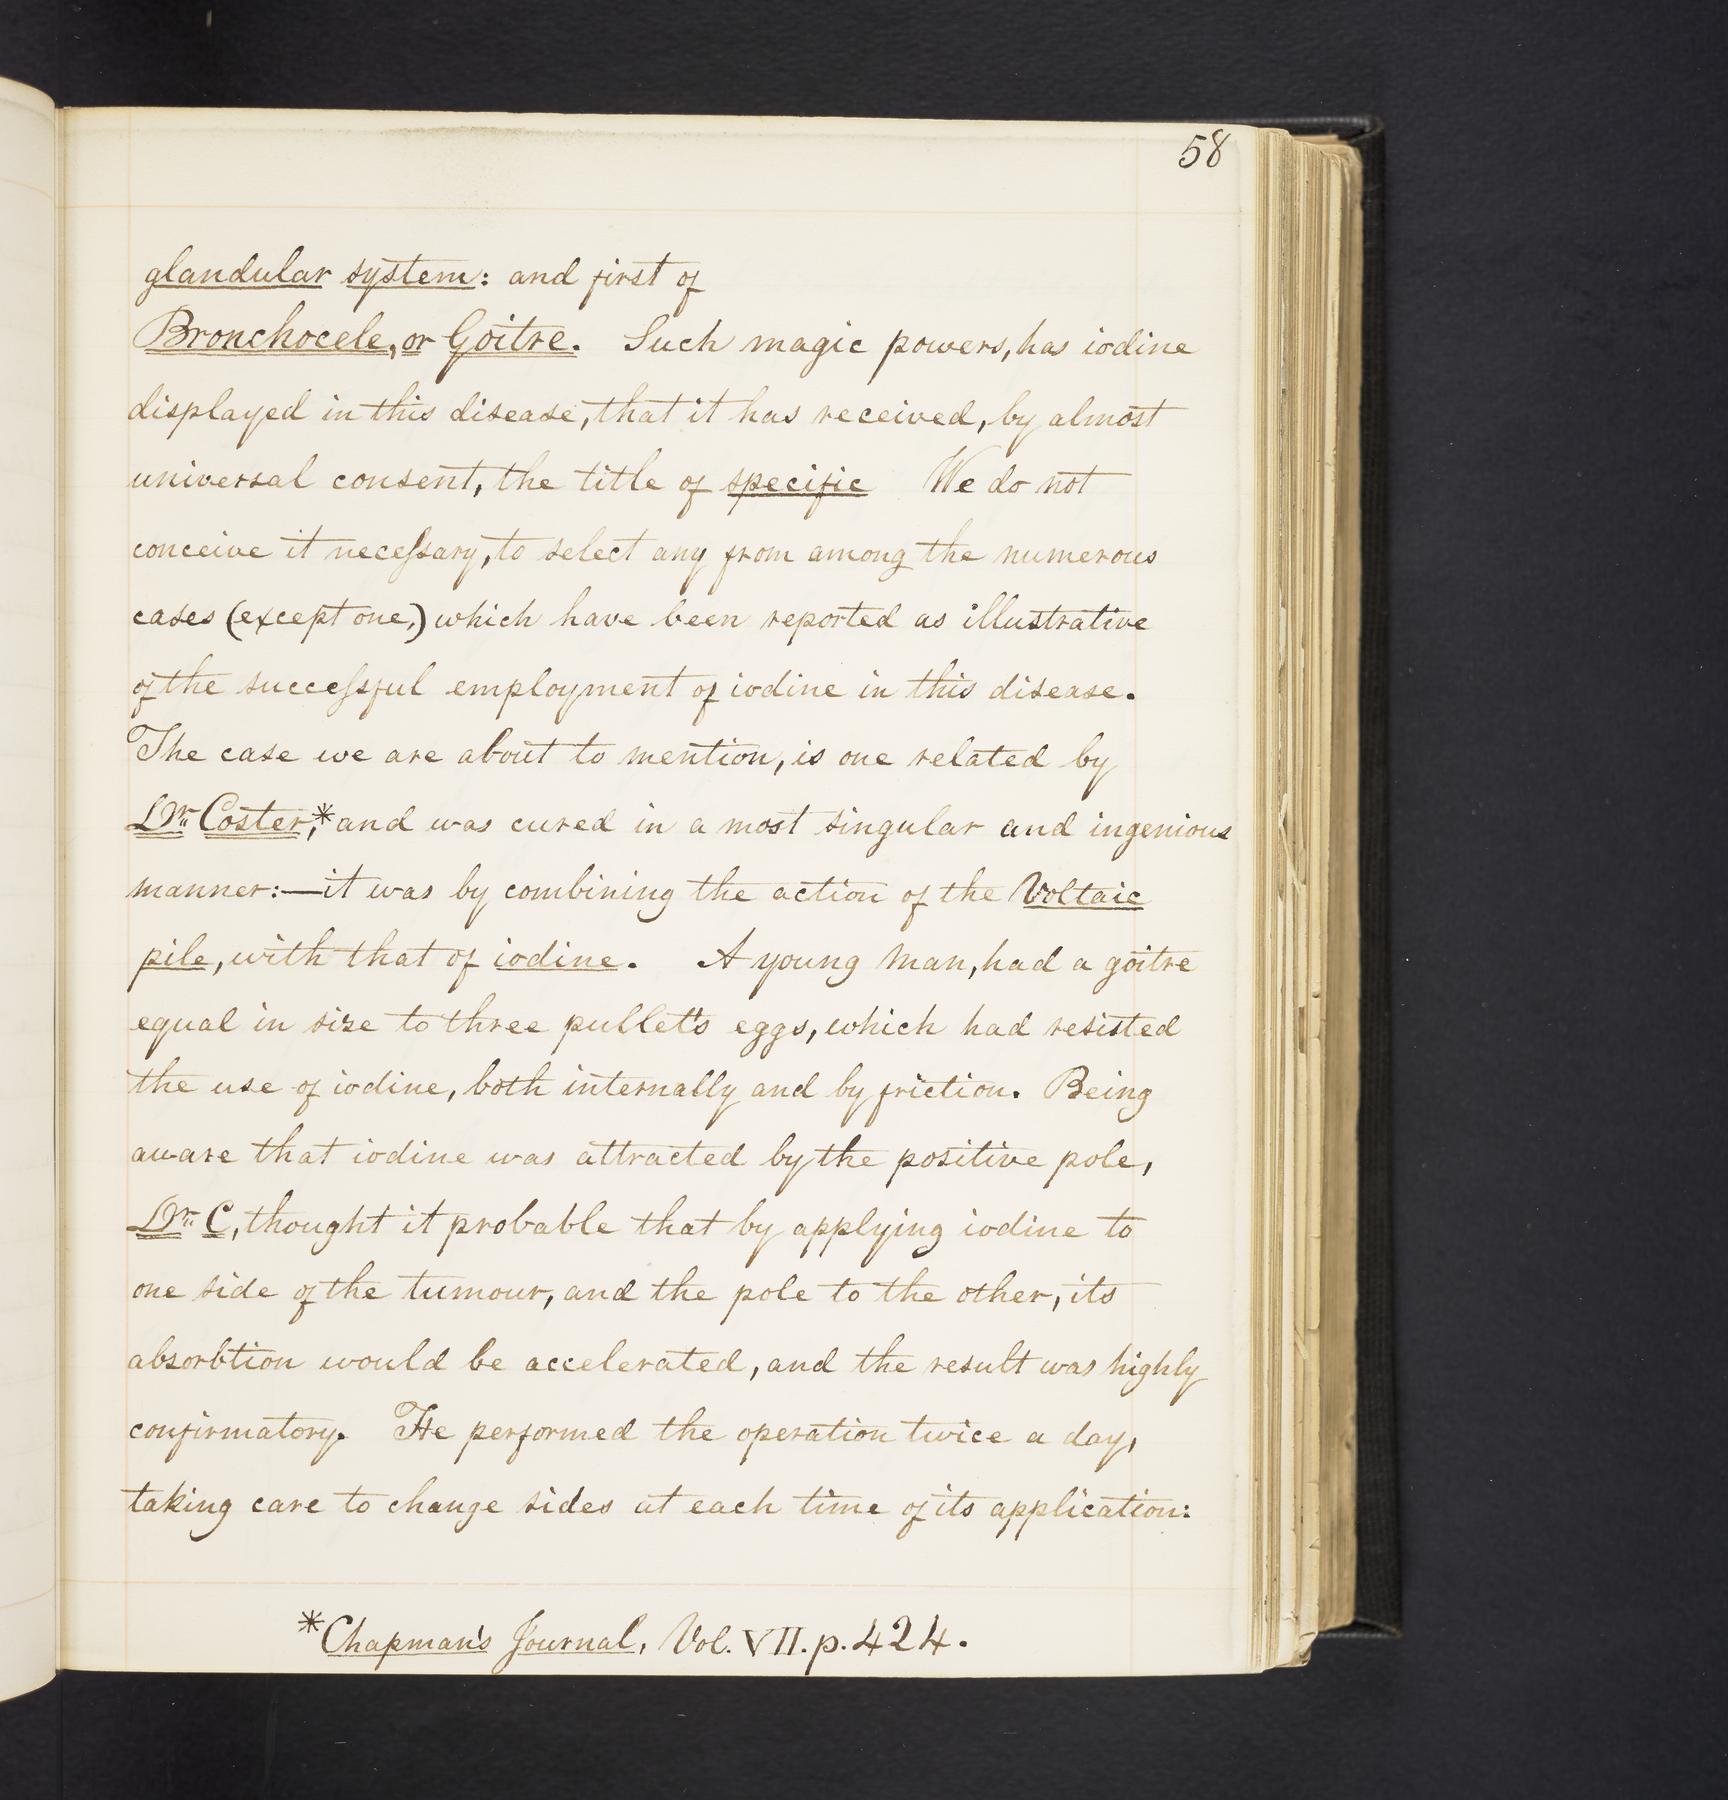 58
glandular system: and first of
Bronchocele, or Goitre. Such magic powers, has iodine
displayed in this disease, that it has received, by almost
universal consent, the title of specific We do not
conceive it neceſsary, to select any from among the numerous
cases (except one,) which have been reported as illustrative
of the succeſsful employment of iodine in this disease.
The case we are about to mention, is one related by
Dr. Coster,* and was cured in a most singular and ingenious
manner:—it was by combining the action of the Voltaic
pile, with that of iodine. A young man, had a goitre
equal in size to three pullet's eggs, which had resisted
the use of iodine, both internally and by friction. Being
aware that iodine was attracted by the positive pole,
Dr. C, thought it probable that by applying iodine to
one side of the tumour, and the pole to the other, its
absorbtion would be accelerated, and the result was highly
confirmatory. He performed the operation twice a day,
taking care to change sides at each time of its application:
*Chapman's Journal, Vol. VII. p. 424.